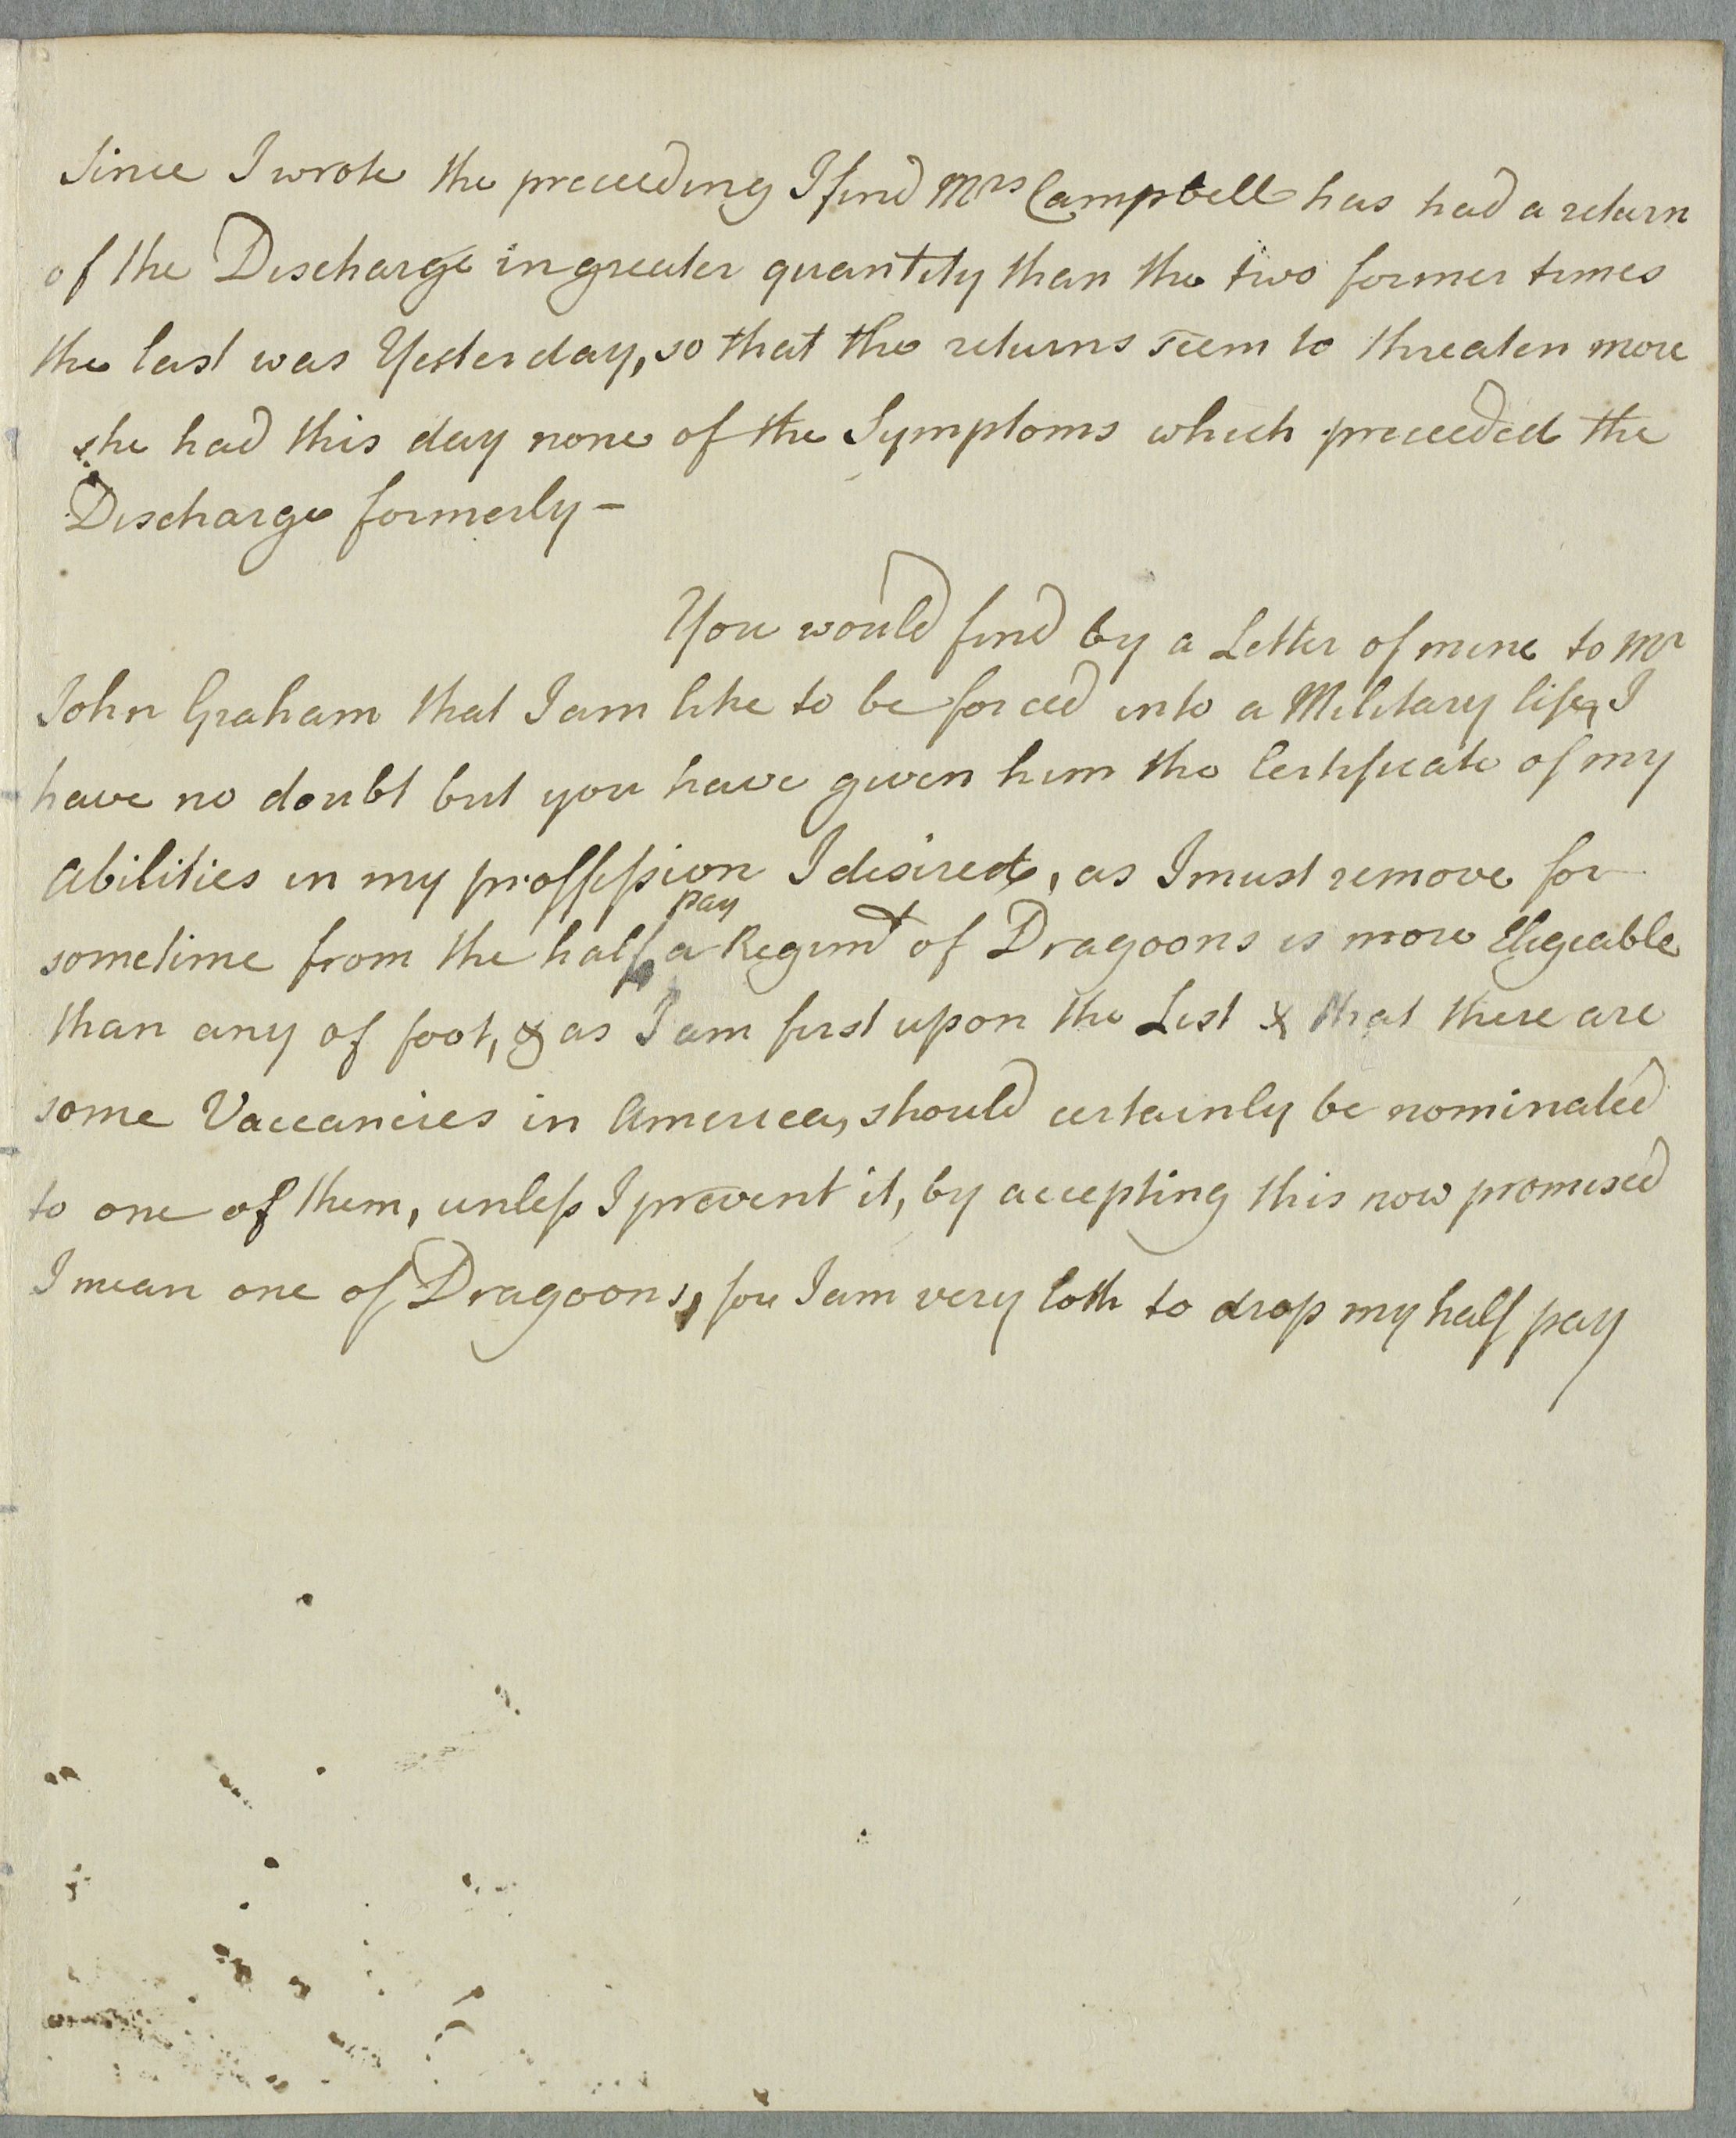 Since I wrote the preceeding I find Mrs Campbell has had a return
of the Discharge in greater quantity than the two former times
the last was Yesterday, so that the returns seem to threaten more
she had this day none of the Symptoms which preceeded the
Discharge formerly –
You would find by a Letter of mine to Mr
John Graham that I am like to be forced into a Military life, I
have no doubt but you have given him the Certificate of my
Abilities in my proffession I desired, as I must remove for
sometime from the half pay a Regimt of Dragoons is more Eligeable
than any of foot, & as I am first upon the List & that there are
some Vaccancies in America, should certainly be nominated
to one of them, unless I prevent it, by accepting this now promised
I mean one of Dragoons, for I am very loth to drop my half pay